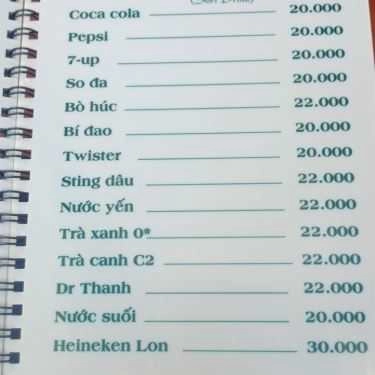 Coca cola 20.000
Pepsi 20.000
7-up 20.000
So đa 20.000
Bò húc 22.000
Bí đao 20.000
Twister 20.000
Sting dâu 22.000
Nước yến 22.000
Trà xanh 0° 22.000
Trà canh C2 22.000
Dr Thanh 22.000
Nước suối 20.000
Heineken Lon 30.000